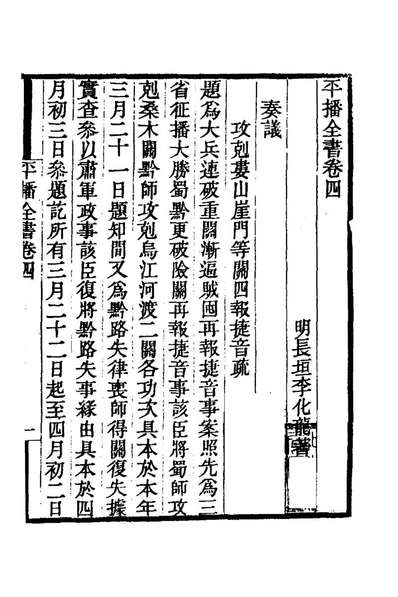 平播全書卷四
明長垣李化龍著
奏議
攻剋婁山崖門等關四報捷音疏
題為大兵連破重關漸逼賊囤再報捷音事案照先為三
省征播大勝蜀黔更破險關再報捷音事該臣將蜀師攻
剋桑木關黔師攻剋烏江河渡二關各功次具本於本年
三月二十一日題知間又為黔路失律喪師得關復失據
實查參以肅軍政事該臣復將黔路失事緣由具本於四
月初三日參題訖所有三月二十二日起至四月初二日
平播全書卷四
一